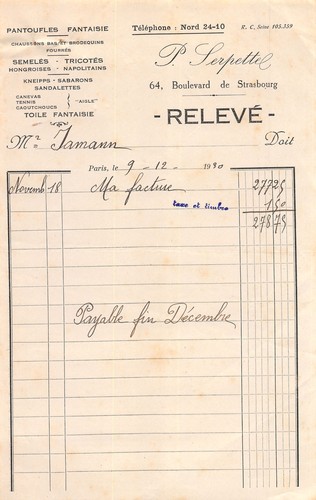 PANTOUFLES FANTAISIE
CHAUSSONS BAS, ET BRODEQUINS
FOURRÉS
SEMELÉS - TRICOTÉS
HONGROISES - NAPOLITAINS
KNEIPPS - SABARONS
SANDALETTES
CANEVAS
TENNIS
CAOUTCHOUCS
"AIGLE"
TOILE FANTAISIE
Téléphone : Nord 24-10
R. C. Seine 105.359
P. Serpette
64, Boulevard de Strasbourg
- RELEVÉ -
Mr Jamann
Doit
Paris, le 9 - 12 - 1930
Novemb 18 Ma facture 277 25
taxe et timbre 1 50
278 75
Payable fin Décembre